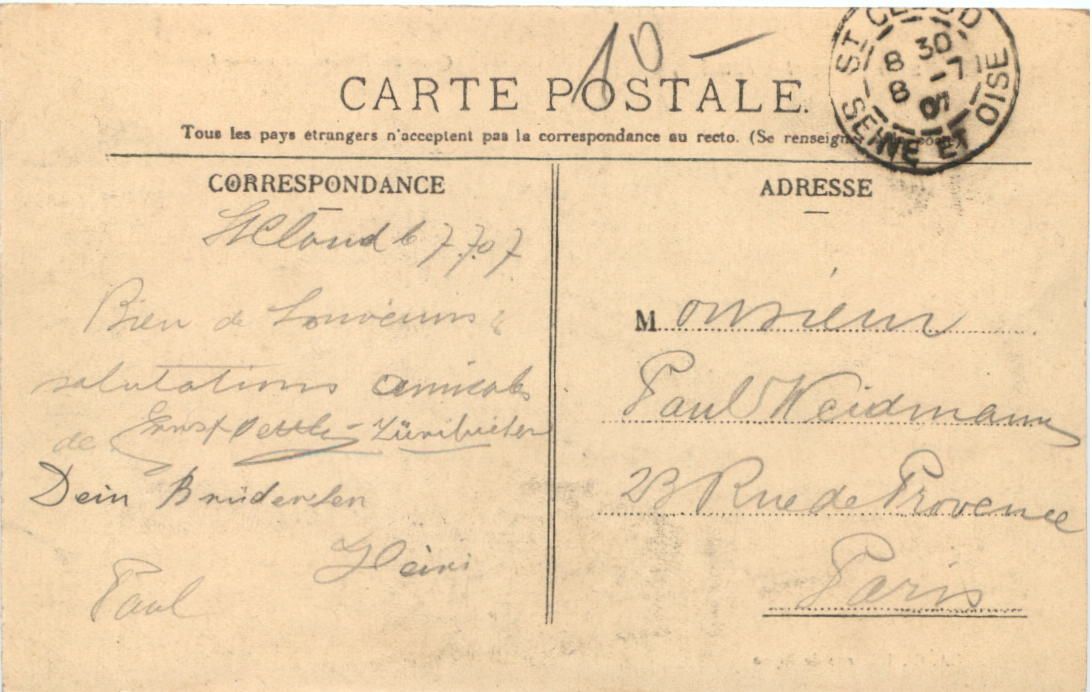 10 —
CARTE POSTALE.
Tous les pays étrangers n'acceptent pas la correspondance au recto. (Se renseign
ST CLOUD
30
8 - 7
8 07
SEINE ET OISE
CORRESPONDANCE
ADRESSE
St Cloud le 7.7.07
Bien de Souvenirs &
salutations amicales
de Ernst Züribieter
Dein Brüderlen
Heini
Paul
Monsieur
Paul Weidmann
23 Rue de Provence
Paris